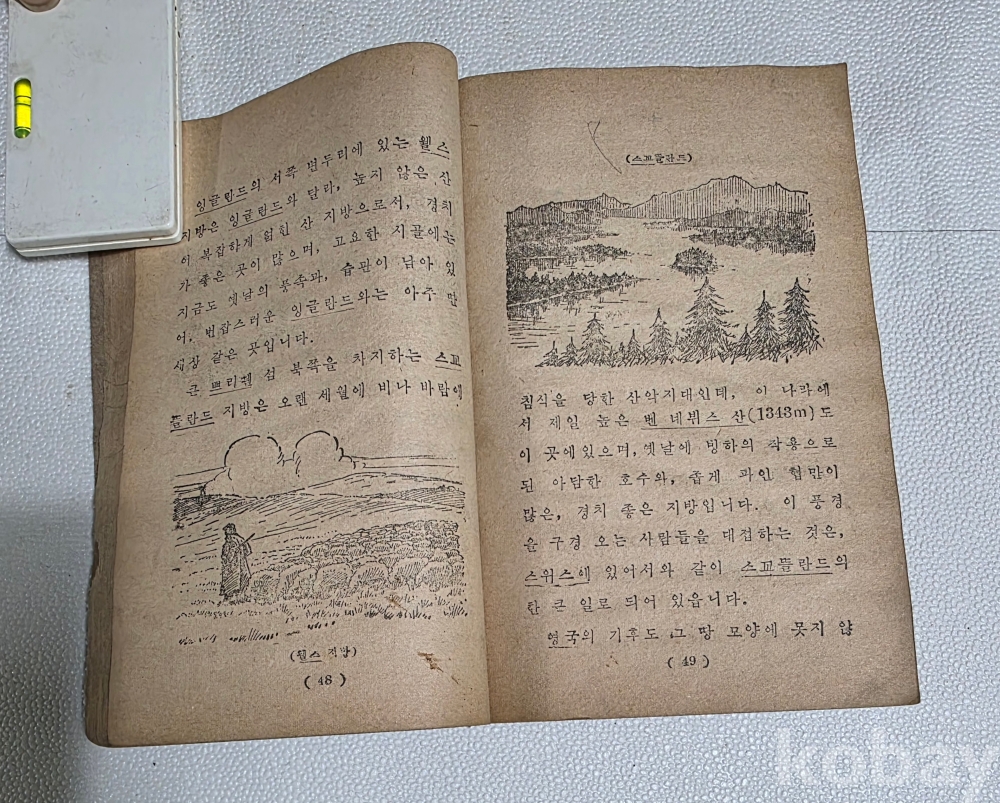 잉글란드의 서쪽 변두리에 있는 웰스
지방은 잉글란드와 달라, 높지 않은 산
이 복잡하게 얽힌 산 지방으로서, 경치
가 좋은 곳이 많으며, 고요한 시골에는
지금도 옛날의 풍속과, 습관이 남아 있
어, 번잡스러운 잉글란드와는 아주 딴
세상 같은 곳입니다.
큰 쁘리텐 섬 북쪽을 차지하는 스꼬
틀란드 지방은 오랜 세월에 비나 바람에
(웰스 지방)
( 48 )
(스꼬틀란드)
침식을 당한 산악지대인데, 이 나라에
서 제일 높은 벤 네뷔스 산(1343m)도
이 곳에있으며, 옛날에 빙하의 작용으로
된 아담한 호수와, 좁게 파인 협만이
많은, 경치 좋은 지방입니다. 이 풍경
을 구경 오는 사람들을 대접하는 것은,
스위스에 있어서와 같이 스꼬틀란드의
한 큰 일로 되어 있읍니다.
영국의 기후도 그 땅 모양에 못지 않
( 49 )
kobay